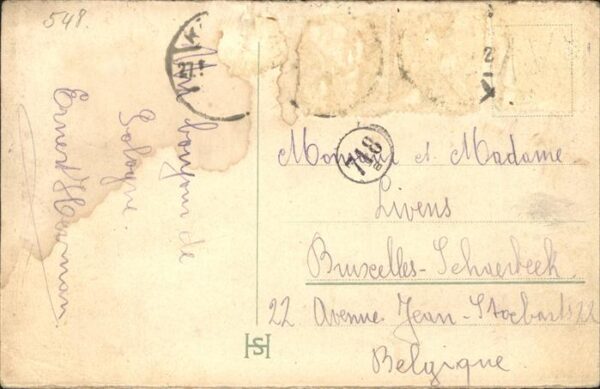 548.
27.
Un bonjour de
Cologne.
Ernest Herman
748
Monsieur et Madame
Livens
Bruxelles-Schaerbeek.
22 Avenue Jean-Stobarts 22
Belgique.
HS